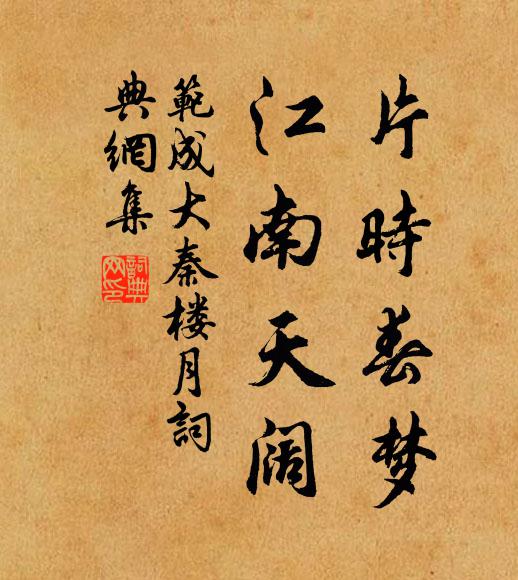 片時春梦
江南天阔
範成大秦楼月詞
典網集
詞典网印